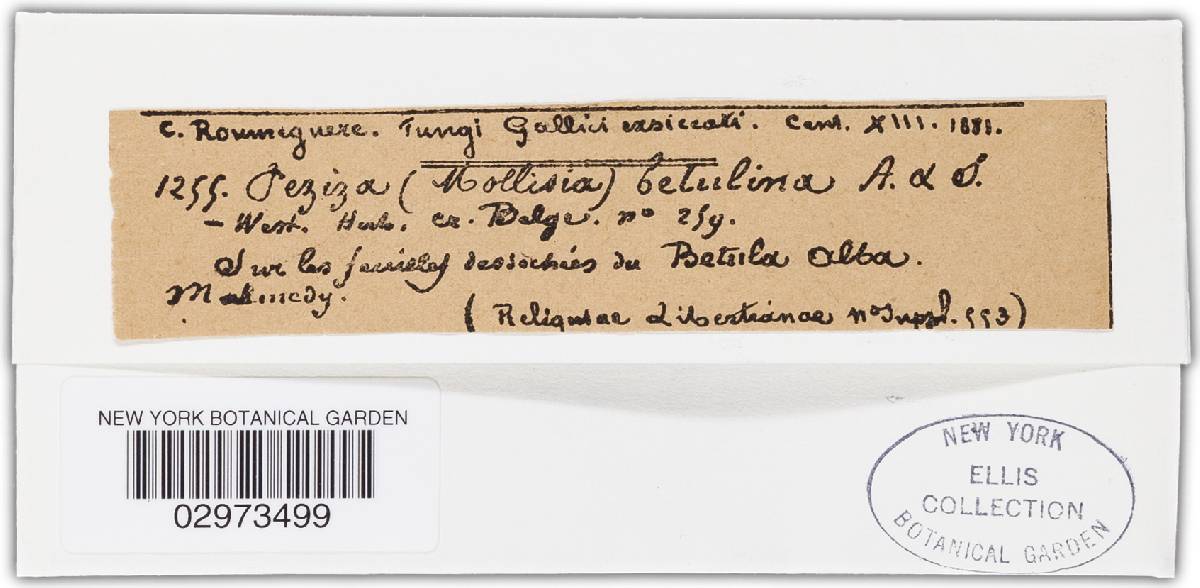 C. Roumeguere. Fungi Gallici exsiccati. Cent. XIII. 1881.
1255. Peziza (Mollisia) betulina A. & S.
— West. Herb. cr. Belge. no 259.
Sur les feuilles dessechées du Betula alba.
Malmedy.
(Reliquiae Libertianae no Suppl. 553)
NEW YORK BOTANICAL GARDEN
02973499
NEW YORK
ELLIS
COLLECTION
BOTANICAL GARDEN